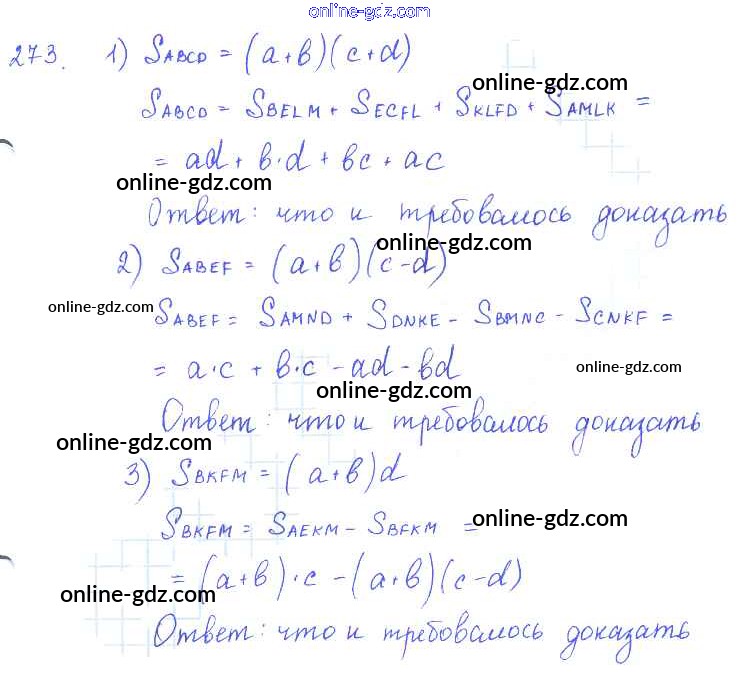 online-gdz.com
273. 1) SABCD = (a+b)(c+d)
online-gdz.com
SABCD = SBELM + SECFL + SKLFD + SAMLK =
= ad + b·d + bc + ac
online-gdz.com
Ответ: что и требовалось доказать
online-gdz.com
2) SABEF = (a+b)(c-d)
online-gdz.com
SABEF = SAMND + SDNKE - SBMNC - SCNKF =
= a·c + b·c - ad - bd
online-gdz.com
online-gdz.com
Ответ: что и требовалось доказать
online-gdz.com
3) SBKFM = (a+b)d
online-gdz.com
SBKFM = SAEKM - SBFKM =
= (a+b)·c - (a+b)(c-d)
online-gdz.com
online-gdz.com
Ответ: что и требовалось доказать